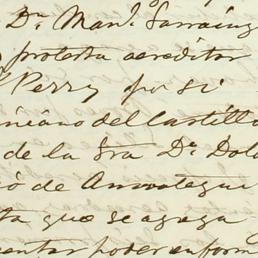 Dn. Manl. Larrainz
protesta acreditar
Perry por si
del Castillo
de la Sra Da. Dolo
de Amoategui
ta que se agrega
entar poder en form